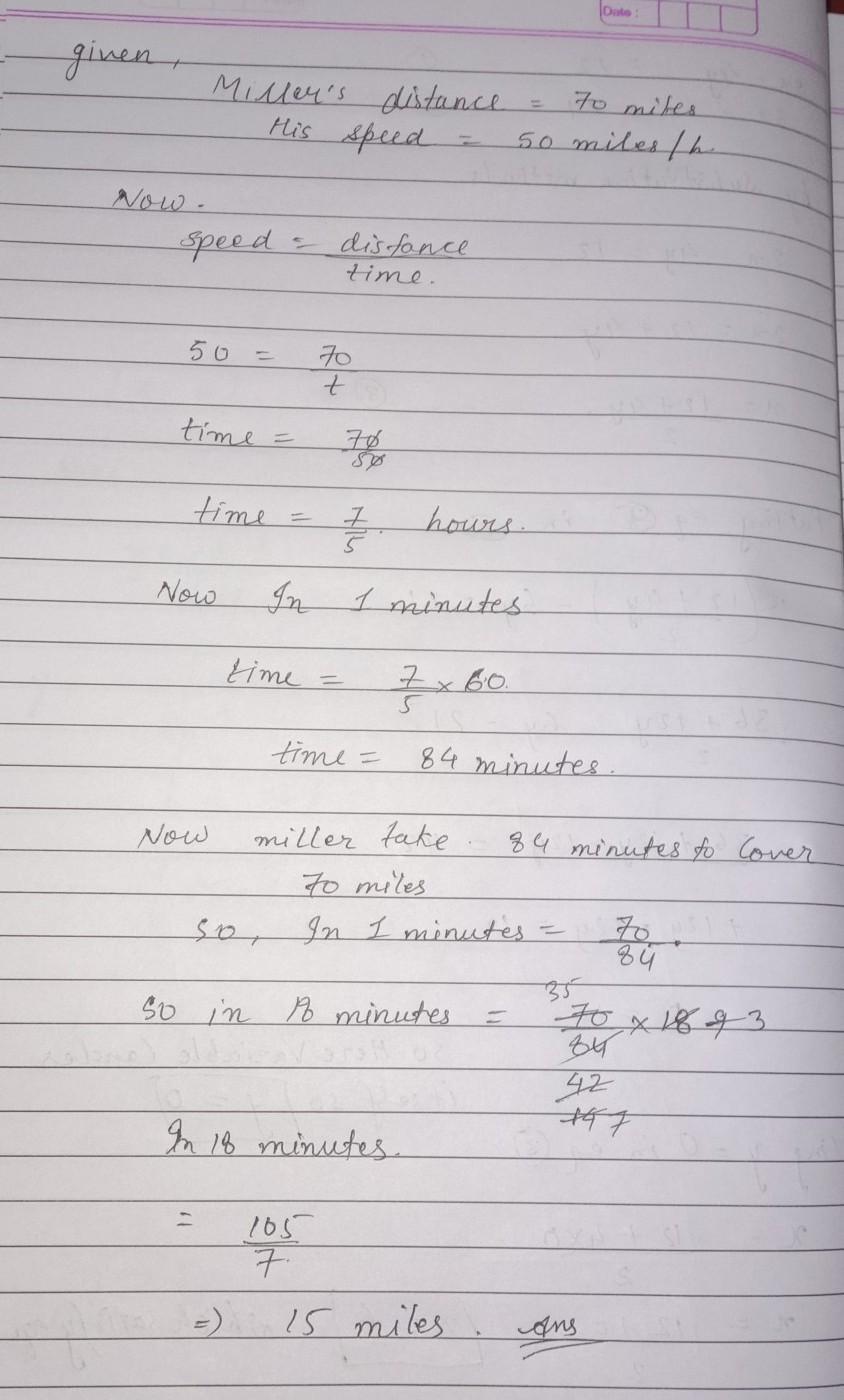 Date :
given,
Miller's distance = 70 miles
His speed = 50 miles/h.
Now.
speed = distance
time.
50 = 70
t
time = 70
50
time = 7 hours.
5
Now In 1 minutes
time = 7 × 60.
5
time = 84 minutes.
Now miller take. 84 minutes to Cover
70 miles
so, In 1 minutes = 70.
84
35
so in 18 minutes = 70 × 18 9 3
84
42
14 7
In 18 minutes.
= 105
7.
=) 15 miles. Ans